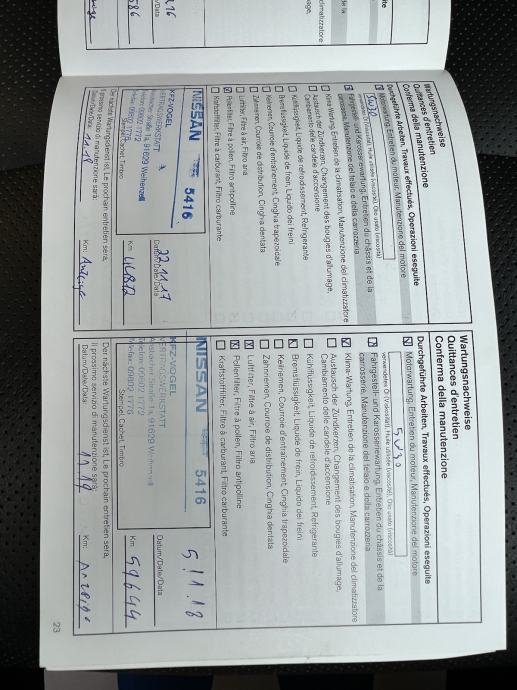 Wartungsnachweise
Quittances d'entretien
Conferma della manutenzione
Durchgeführte Arbeiten, Travaux effectués, Operazioni eseguite
Motorwartung, Entretien du moteur, Manutenzione del motore
5W30
Fahrgestell- und Karosseriewartung, Entretien du châssis et de la
carrosserie, Manutenzione del telaio e della carrozzeria
Klima-Wartung, Entretien de la climatisation, Manutenzione del climatizzatore
Austausch der Zündkerzen, Changement des bougies d'allumage,
Cambiamento delle candele d'accensione
Kühlflüssigkeit, Liquide de refroidissement, Refrigerante
Bremsflüssigkeit, Liquide de frein, Liquido dei freni
Keilriemen, Courroie d'entraînement, Cinghia trapezoidale
Zahnriemen, Courroie de distribution, Cinghia dentata
Luftfilter, Filtre à air, Filtro aria
Pollenfilter, Filtre à pollen, Filtro antipolline
Kraftstofffilter, Filtre à carburant, Filtro carburante
NISSAN 5416
KFZ-VOGEL
VERTRAGSWERKSTATT
Telefon 09802 1772
Telefax 09802 1776
Stempel, Cachet, Timbro
Datum/Date/Data
Km
Der nächste Wartungsdienst ist, Le prochain entretien sera,
Il prossimo servizio di manutenzione sarà:
Datum/Date/Data
11.18
Km
Anzeige
Wartungsnachweise
Quittances d'entretien
Conferma della manutenzione
Durchgeführte Arbeiten, Travaux effectués, Operazioni eseguite
Motorwartung, Entretien du moteur, Manutenzione del motore
verwendetes Öl (Viskosität), Huile utilisée (viscosité), Olio usato (viscosità)
5W30
Fahrgestell- und Karosseriewartung, Entretien du châssis et de la
carrosserie, Manutenzione del telaio e della carrozzeria
Klima-Wartung, Entretien de la climatisation, Manutenzione del climatizzatore
Austausch der Zündkerzen, Changement des bougies d'allumage,
Cambiamento delle candele d'accensione
Kühlflüssigkeit, Liquide de refroidissement, Refrigerante
Bremsflüssigkeit, Liquide de frein, Liquido dei freni
Keilriemen, Courroie d'entraînement, Cinghia trapezoidale
Zahnriemen, Courroie de distribution, Cinghia dentata
Luftfilter, Filtre à air, Filtro aria
Pollenfilter, Filtre à pollen, Filtro antipolline
Kraftstofffilter, Filtre à carburant, Filtro carburante
NISSAN 5416
KFZ-VOGEL
VERTRAGSWERKSTATT
Telefon 09802 1772
Telefax 09802 1776
Stempel, Cachet, Timbro
5.11.18
Datum/Date/Data
59644
Km
Der nächste Wartungsdienst ist, Le prochain entretien sera,
Il prossimo servizio di manutenzione sarà:
Datum/Date/Data
11.19
Km
Anzeige
23